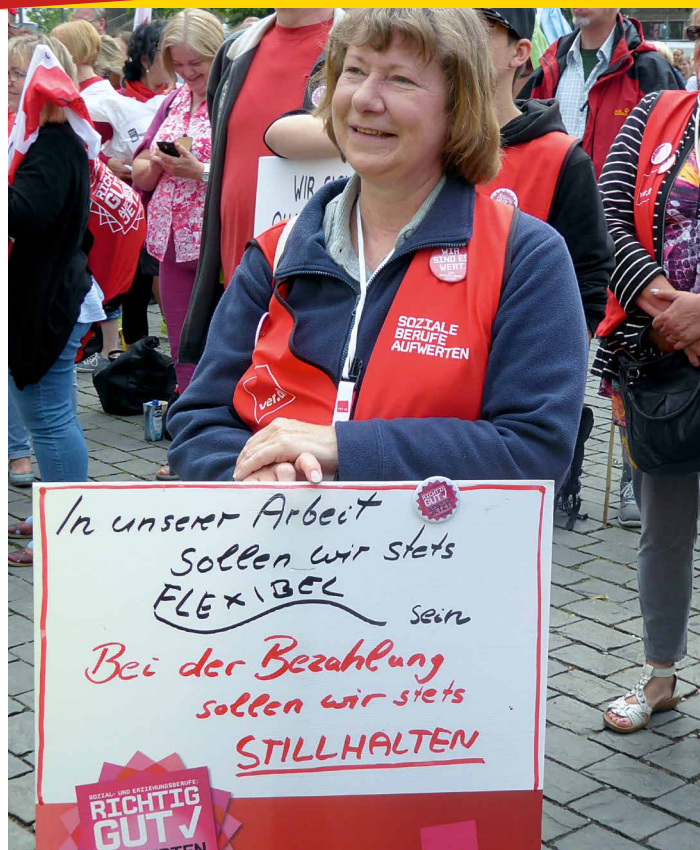 WIR
RICHTIG
GUT
WIR
SIND ES
WERT.
SOZIALE
BERUFE
AUFWERTEN
ver.di
RICHTIG
GUT
In unserer Arbeit
sollen wir stets
FLEXIBEL
sein
Bei der Bezahlung
sollen wir stets
STILLHALTEN
SOZIAL- UND ERZIEHUNGSBERUFE:
RICHTIG
GUT✓